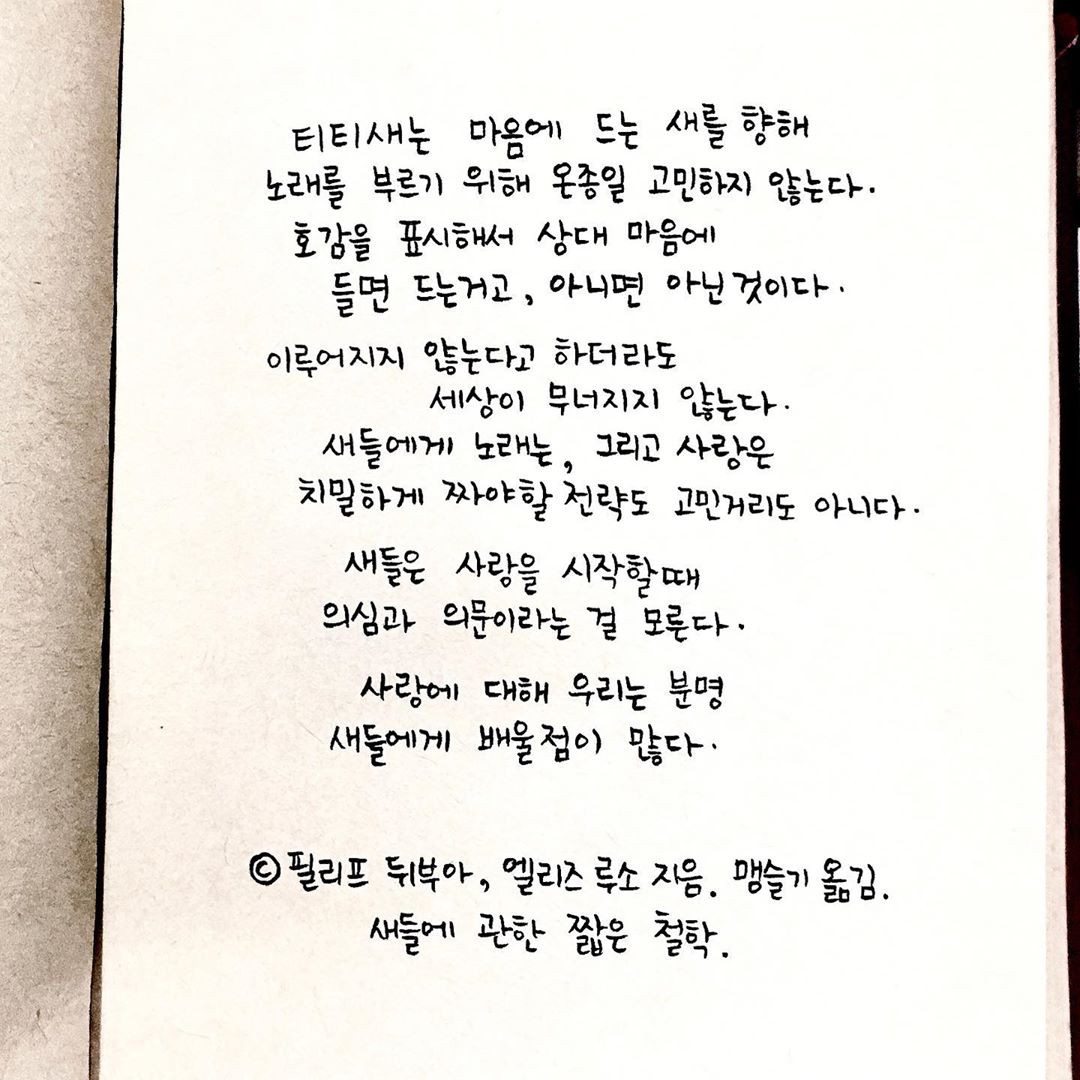 티티새는 마음에 드는 새를 향해
노래를 부르기 위해 온종일 고민하지 않는다.
호감을 표시해서 상대 마음에
들면 드는거고, 아니면 아닌것이다.
이루어지지 않는다고 하더라도
세상이 무너지지 않는다.
새들에게 노래는, 그리고 사랑은
치밀하게 짜야할 전략도 고민거리도 아니다.
새들은 사랑을 시작할때
의심과 의문이라는 걸 모른다.
사랑에 대해 우리는 분명
새들에게 배울점이 많다.
© 필리프 뒤부아, 엘리즈 루소 지음. 맹슬기 옮김.
새들에 관한 짧은 철학.